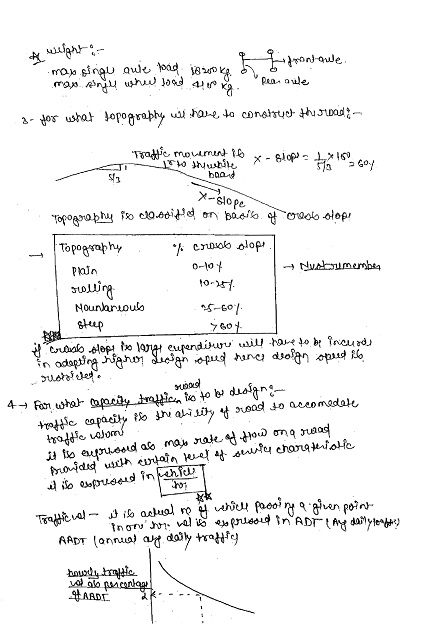 * weight:-
max single axle load is 10200 kg.
max single wheel load 5100 kg.
front axle.
Rear axle
3- for what topography we have to construct the road:-
Traffic movement is
1r to the white
board
X-slope = 1/(5/3) × 100
= 60%
5/3
X-slope
Topography is classified on basis of cross slope
→ Topography % cross slope.
Plain 0-10%
rolling 10-25%
Mountaneous 25-60%
Steep >60%
→ Must remember
if cross slope is large expenditure will have to be incured
in adopting higher design speed hence design speed is
restricted.
4→ For what capacity traffic road is to be design:-
traffic capacity is the ability of road to accomedate
traffic volum
it is expressed as max rate of flow on a road
Provided with certain level of service charateristic
it is expressed in vehicle/hr
Traffic vol - it is actual no of vehicle passing a given point
in one hr. vol is expressed in ADT (Avg daily traffic)
AADT (annual avg daily traffic)
hourly traffic
vol as percentage
of AADT
2